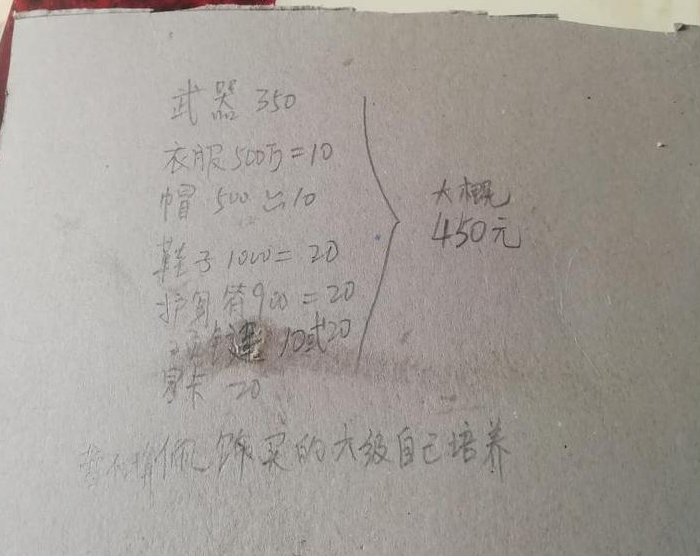 武器 350
衣服 500万=10
帽 500 ≌ 10
鞋子 1000= 20
护身符 900 = 20
链 10或20
卡 20
大概
450元
佩饰买的六级自己培养